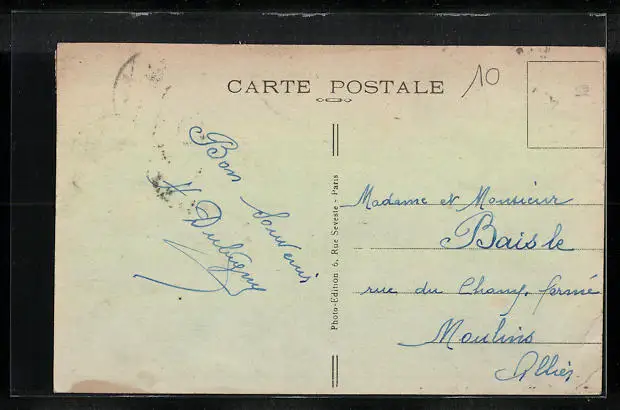 CARTE POSTALE
10
Bon
Souvenir
H Dubligny
Photo-Edition 6, Rue Seveste - Paris
Madame et Monsieur
Baisle
rue du Champ. fermé
Moulins
Allier